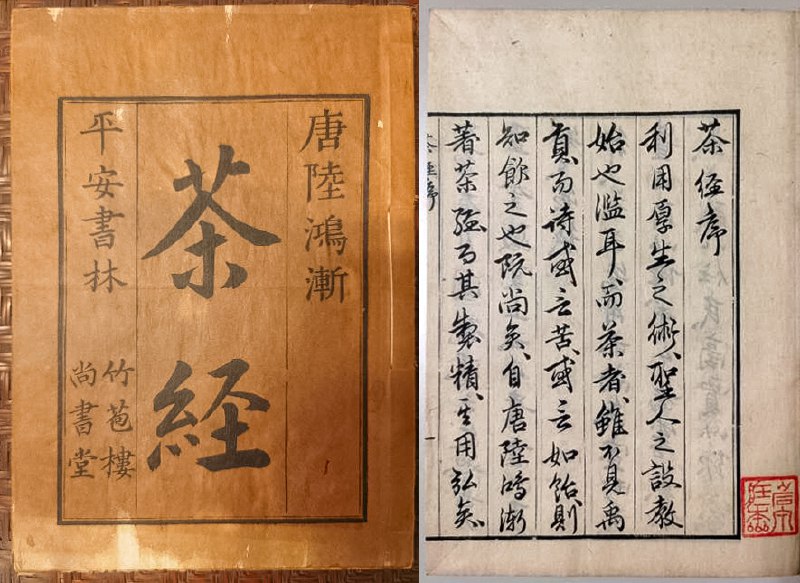 唐陸鴻漸
茶経
平安書林
竹苞樓
尚書堂
茶経序
利用厚生之術、聖人之設教
始也濫耳、而茶者、雖不見禹
貢、而詩或言苦、或言如飴、則
知飲之也既尚矣、自唐陸鴻漸
著茶経而其製精、其用弘矣、
茶経序